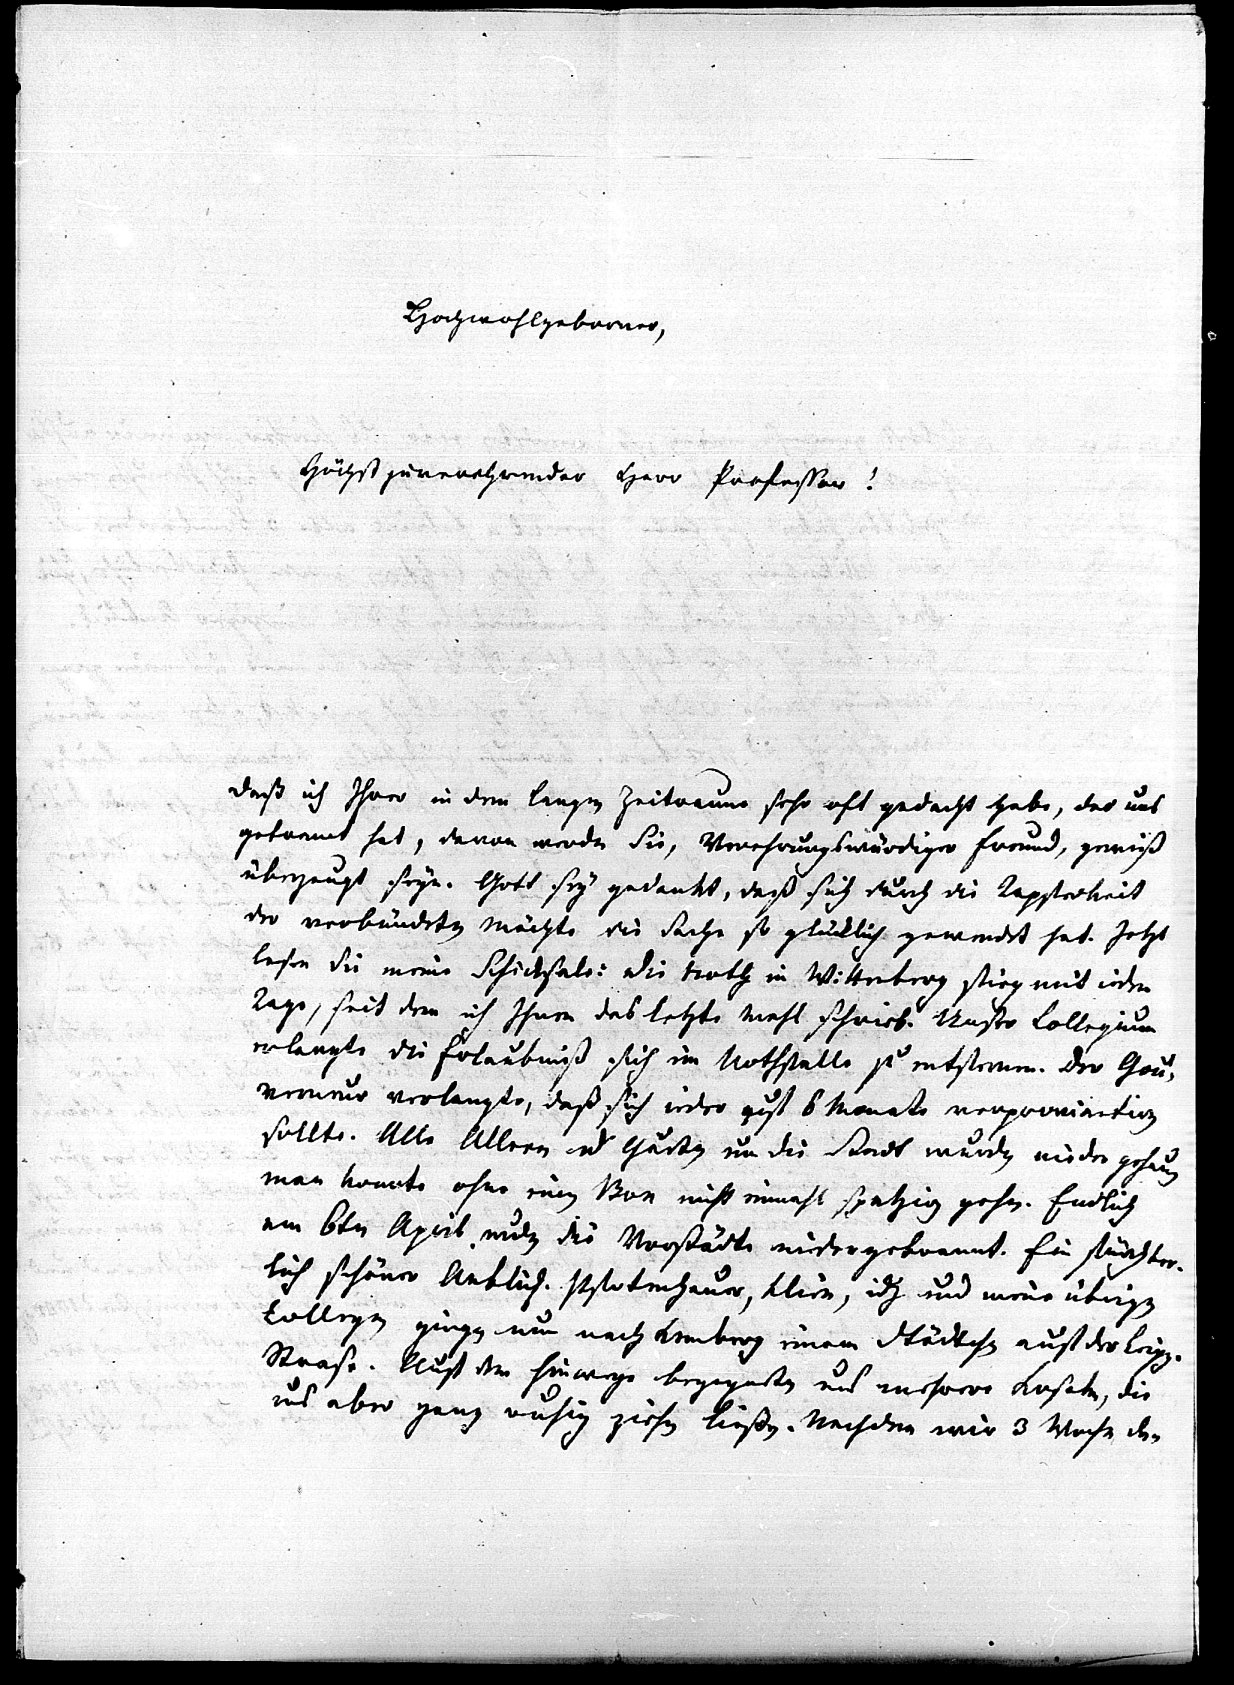 Hochwohlgeborner,
Höchstzuverehrender Herr Professor!
Daß ich Ihrer in dem langen Zeitraume sehr oft gedacht habe, der uns
getrennt hat, davon werden Sie, Verehrungswürdiger Freund, gewiß
überzeugt seyn. Gott sey gedankt, daß sich durch die Tapferkeit
der verbündeten Mächte die Sache so glücklich gewendet hat. Jetzt
lesen Sie meine Schicksale: Die Noth in Wittenberg stieg mit jedem
Tage, seit dem ich Ihnen das letzte Mahl schrieb. Unser Collegium
erlangte die Erlaubniß sich im Nothfalle zu entfernen. Der Gou-
verneur verlangte, daß sich jeder auf 6 Monate verproviantiren
sollte. Alle Alleen und Gärten um die Stadt wurden nieder gehauen
man konnte ohne einen Bon nicht einmahl spatzieren gehen. Endlich
am 6ten April wurden die Vorstädte niedergebrannt. Ein fürchter-
lich schöner Anblick. Pfotenhauer, Klien, ich und meine übrigen
Collegen gingen nun nach Kemberg einem Städtchen auf der Leipz.
Straße. Auf dem Hinwege begegneten uns mehrere Kosaken, die
uns aber ganz ruhig ziehen ließen. Nachdem wir 3 Wochen da-